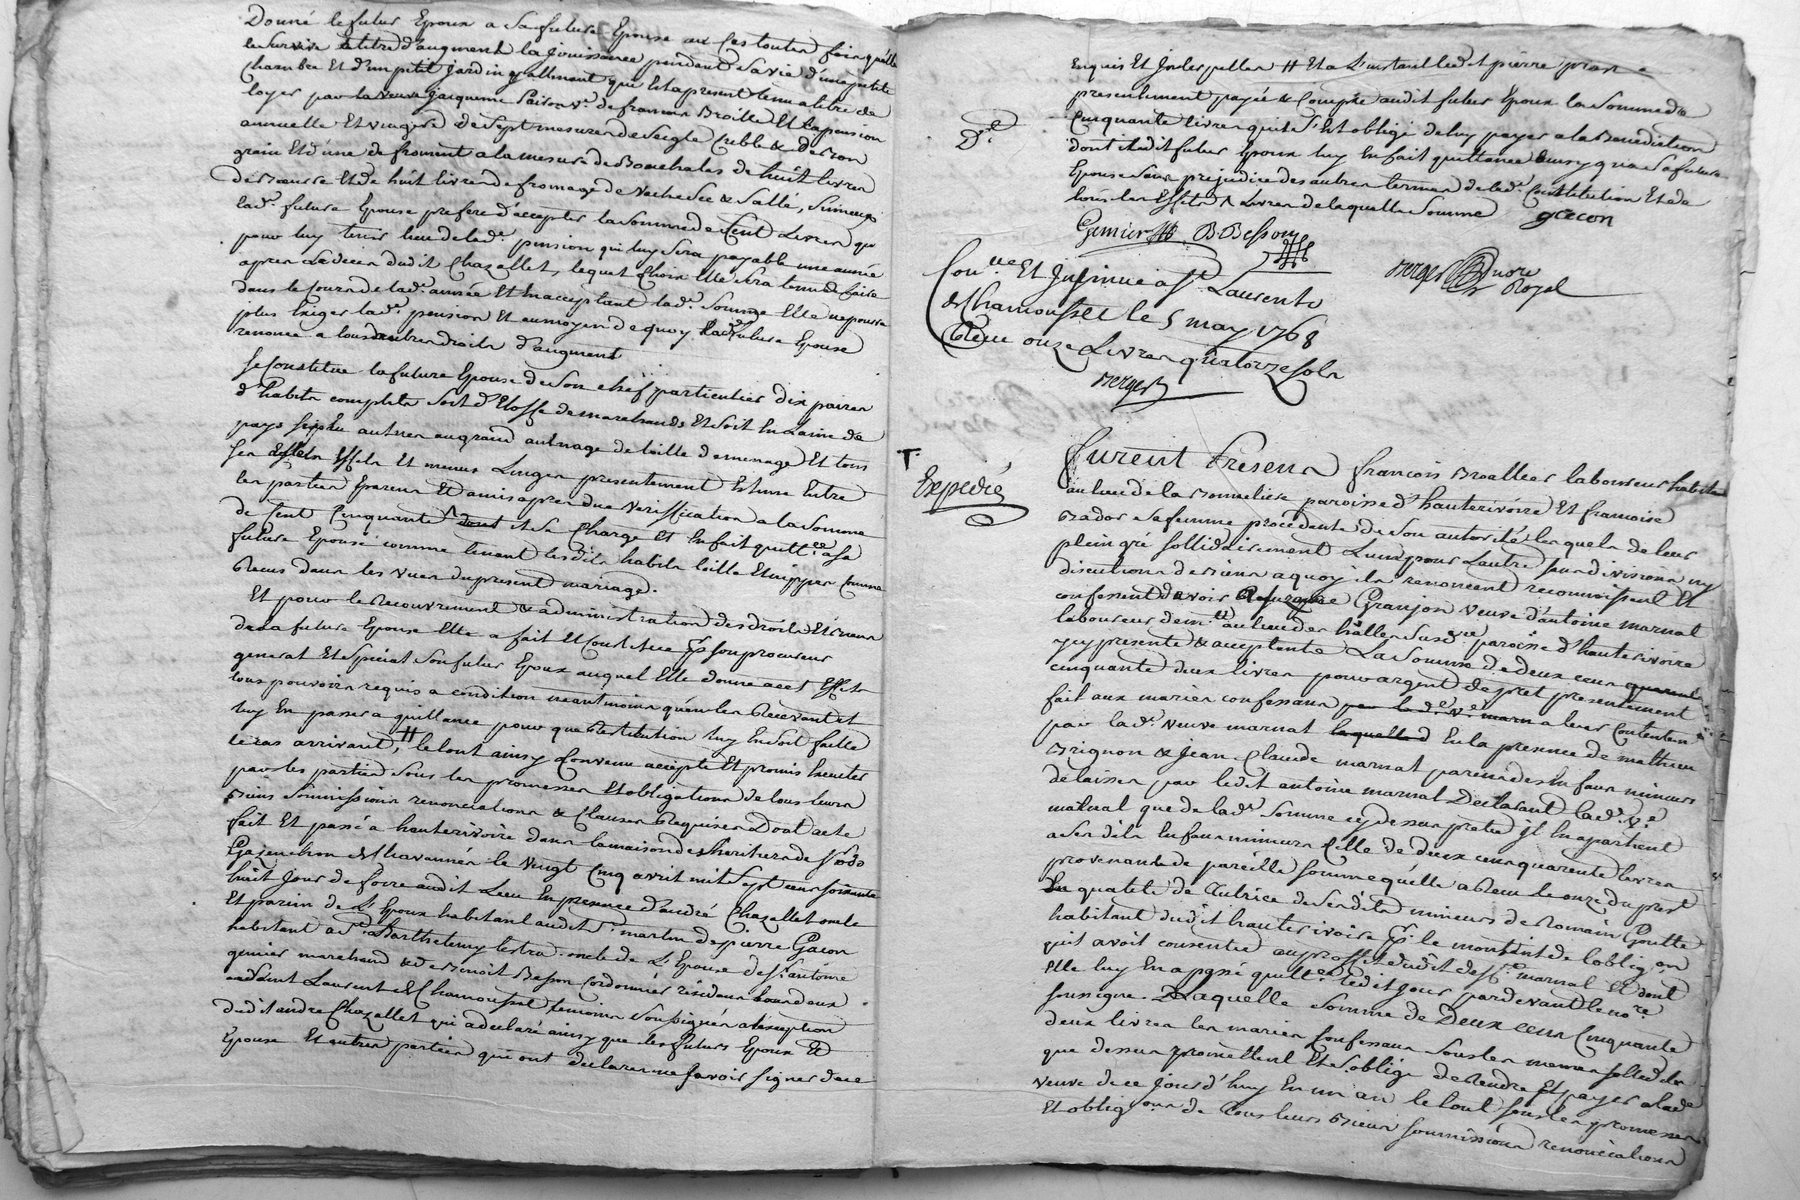 Donné le futur Epoux a Sa future Epouse au Cas toutes fois quelle
le Survive a titre d'augment la Jouissance pendant Sa vie d'une petite
Chambre Et d'un petit Jardin quallment qui Est apresent tenu a titre de
loyer par la veuve Jacqueme vᵉ de francois Et la pension
annuelle Et viagere de Sept mesures de Seigle Criblé & de Son
grain Et d'une de froment a la mesure de de huit livres
de Beurre Et de huit livres de fromage de vache Sec & Salle, Si mieux
lad. future Epouse prefere d'accepter la Somme de Cent Livres qui
pour luy tenir lieu de lad. pension qui luy Sera payable une année
apres Le deces dudit Chazellet, lequel Choix Elle Sera tenu de faire
dans le Cours de lad. année Et En acceptant lad. Somme Elle ne pourra
plus Exiger lad. pension Et au moyen de quoy lad. future Epouse
renonce a tous autres droits d'augment
Se Constitue la future Epouse de Son chef particulier dix paires
d'habits complets Soit d'Etoffe de marchands Et Soit En Laine de
pays Six autres au grand aulnage de toille de menage Et tous
Ses Effets Et menus Linges presentement Estimé Entre
les parties Parens Et amis apres due veriffication a la Somme
de Cent Cinquante dont il Se Charge Et En fait quittce a Sa
future Epouse comme tenant lesdits habits toille Et nippes Comme
Reçus dans les vues du present mariage.
Et pour le Recouvrement & administration des droits Et Biens
de la future Epouse Elle a fait Et Constitué pr Son procureur
general Et Special Son futur Epoux auquel Elle donne a cet Effet
tous pouvoirs requis a condition neantmoins qu'en les Recevant et
luy En passera quittance pour que Restitution luy En Soit faitte
le cas arrivant, # le tout ainsy Convenu accepté Et promis Executer
par les parties Sous les promesses Et obligations de tous leurs
Biens Soumissions renonciations & Clauses Requises Dont acte
fait Et passé a hauterivoire dans la maison des heritiers de
Chavannes le vingt Cinq avril mil Sept cens Soixante
huit Jour de foire audit Lieu En presence d'andré Chazellet oncle
Et parin de L'Epoux habitant audit St. martin de pierre Gacon
habitant a St. Barthelemy lestra oncle de L'Epouse de Sr. antoine
guinier marchand & de Benoit Besson Cordonnier residans tous deux
audit Saint Laurent de Chamousset temoins Soussignés a l'exception
dudit andré Chazellet qui a declaré ainsy que les futurs Epoux &
Epouse Et autres parties qui ont declarer ne Savoir Signer de ce
Enquis Et Interpelles # Et a L'instant ledit pierre
presentement payée & Compté audit futur Epoux la Somme de
Cinquante livres qu'il S'Est obligé de luy payer a la Benediction
dont ledit futur Epoux luy En fait quittance ainsy qu'a Sa future
Epouse Sans prejudice des autres termes de lad. Constitution Et de
tous les Effets ^ Livres de laquelle Somme gacon
Dle
Guinier B. Besson
Berger nore Royal
Conlle Et Insinué a St. Laurent
de Chamousset le 5 may 1768
Reçu onze Livres quatorze sols
Berger
Expedié
Furent Presens francois Broallier laboureur habitant
au lieu de la Bonneliere paroisse d'hauterivoire Et francoise
Bador Sa femme procedante de Son autorité lesquels de leur
plein gré Sollidairement L'un pour L'autre Sans division ny
discution de Biens a quoy ils renoncent reconnoissent Et
confessent devoir a Granjon veuve d'antoine marnat
laboureur demt. au lieu des halles Susde. paroisse d'hauterivoire
icy presente & acceptante La Somme de deux cens quarente
cinquante deux livres pour argent de prêt presentement
fait aux mariés confessans par lade. ve. marn a leur Contentem.
par lad. veuve marnat laquelle d En la presence de mathieu
Brignon & Jean Claude marnat parens des Enfans mineurs
delaissés par ledit antoine marnat Declarant lad. ve.
matnal que de lad. Somme cy dessus pretée Il En apartient
a Ses dits Enfans mineurs Celle de deux cens quarente livres
provenante de pareille Somme qu'elle a Reçu le onze du prest
En qualité de Tutrice de Ses dits mineurs de Romain Goutte
habitant dudit hauterivoire pr le montant de l'obligon
quil avoit consentie au proffit dudit deft. marnat Et dont
Elle luy En a passé quittce ledit Jour pardevant le nore.
Soussigné. Laquelle Somme de Deux cens Cinquante
deux livres les mariés Confessans Sous la meme Sollidité
que dessus promettent Et S'oblige de Rendre Et payer a lade
veuve de ce Jourd'huy En un an le tout Sous les promesses
Et obligons de Tous leurs Biens Soumissions renonciations